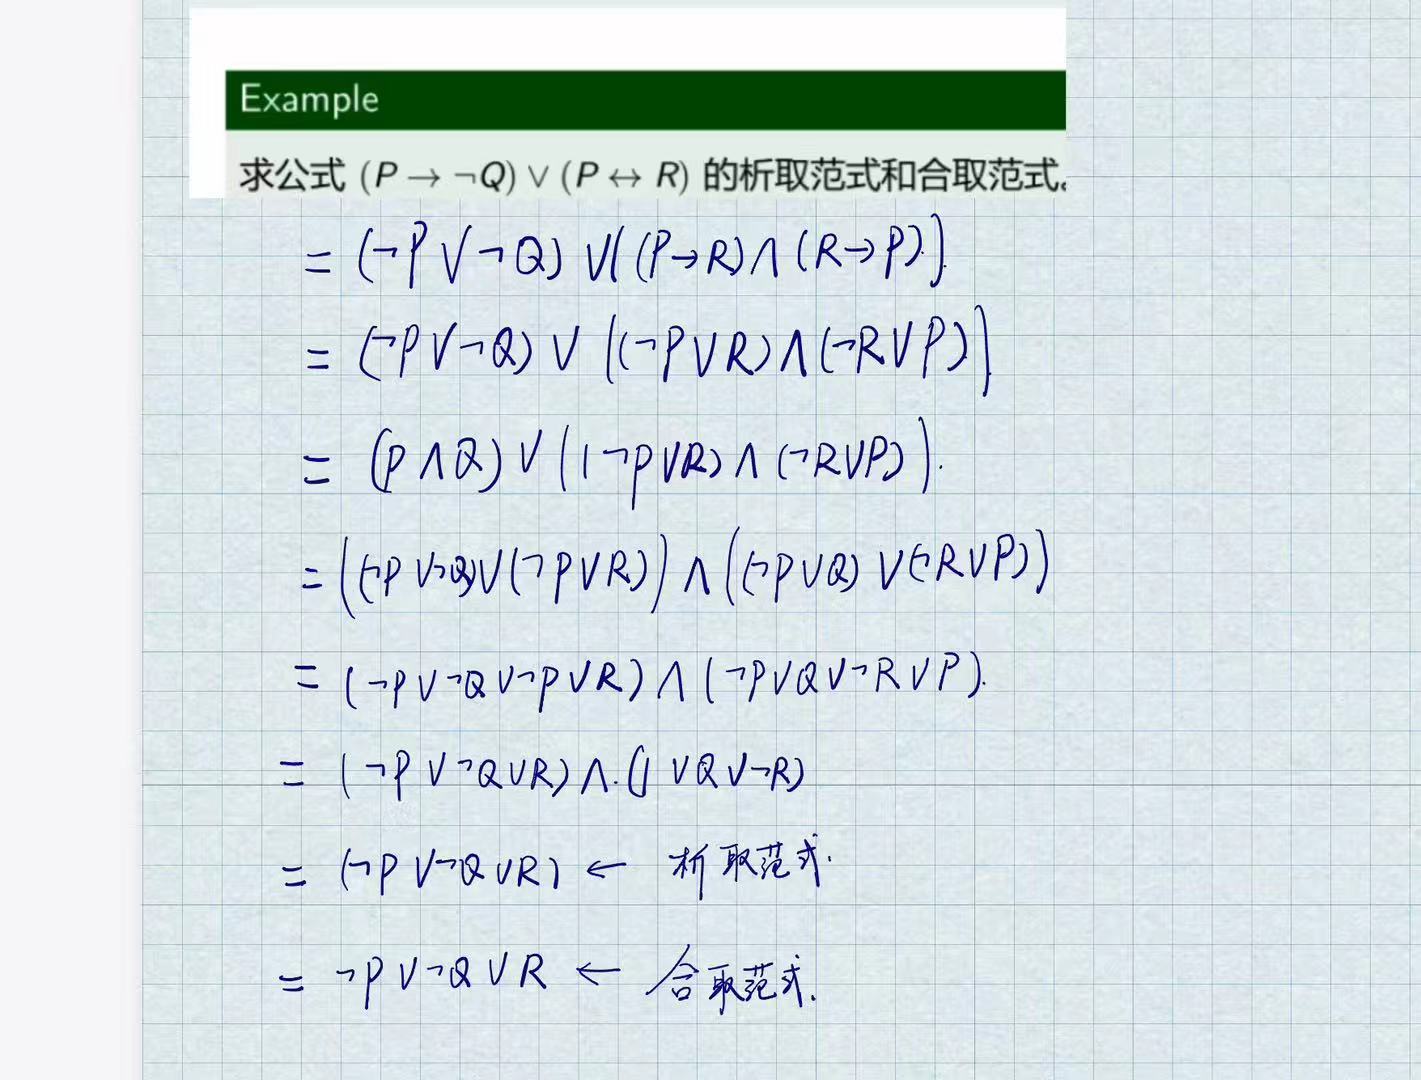 Example
求公式 (P → ¬Q) ∨ (P ↔ R) 的析取范式和合取范式。
= (¬P ∨ ¬Q) ∨ ((P→R) ∧ (R→P)).
= (¬P ∨ ¬Q) ∨ ((¬P ∨ R) ∧ (¬R ∨ P))
= (P ∧ Q) ∨ ((¬P ∨ R) ∧ (¬R ∨ P)).
= ((¬P ∨ ¬Q) ∨ (¬P ∨ R)) ∧ ((¬P ∨ Q) ∨ (¬R ∨ P))
= (¬P ∨ ¬Q ∨ ¬P ∨ R) ∧ (¬P ∨ Q ∨ ¬R ∨ P).
= (¬P ∨ ¬Q ∨ R) ∧ (1 ∨ Q ∨ ¬R)
= (¬P ∨ ¬Q ∨ R) ← 析取范式.
= ¬P ∨ ¬Q ∨ R ← 合取范式.